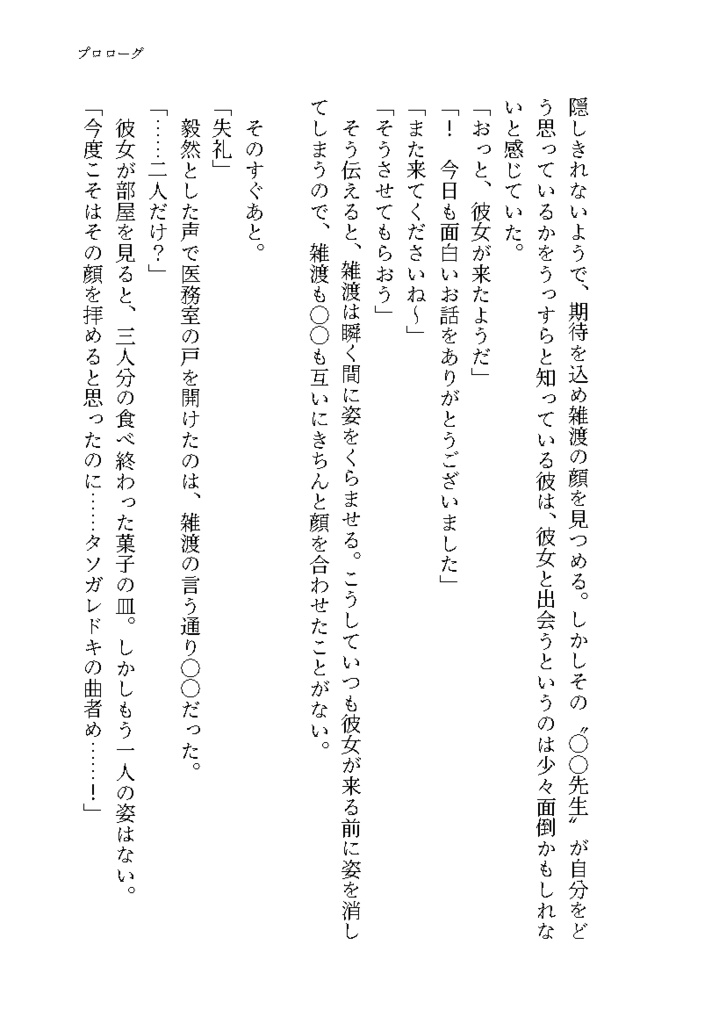 プロローグ
隠しきれないようで、期待を込め雑渡の顔を見つめる。しかしその〝〇〇先生〟が自分をど
う思っているかをうっすらと知っている彼は、彼女と出会うというのは少々面倒かもしれな
いと感じていた。
「おっと、彼女が来たようだ」
「！　今日も面白いお話をありがとうございました」
「また来てくださいね～」
「そうさせてもらおう」
そう伝えると、雑渡は瞬く間に姿をくらませる。こうしていつも彼女が来る前に姿を消し
てしまうので、雑渡も〇〇も互いにきちんと顔を合わせたことがない。
そのすぐあと。
「失礼」
毅然とした声で医務室の戸を開けたのは、雑渡の言う通り〇〇だった。
「……二人だけ？」
彼女が部屋を見ると、三人分の食べ終わった菓子の皿。しかしもう一人の姿はない。
「今度こそはその顔を拝めると思ったのに……タソガレドキの曲者め……！」